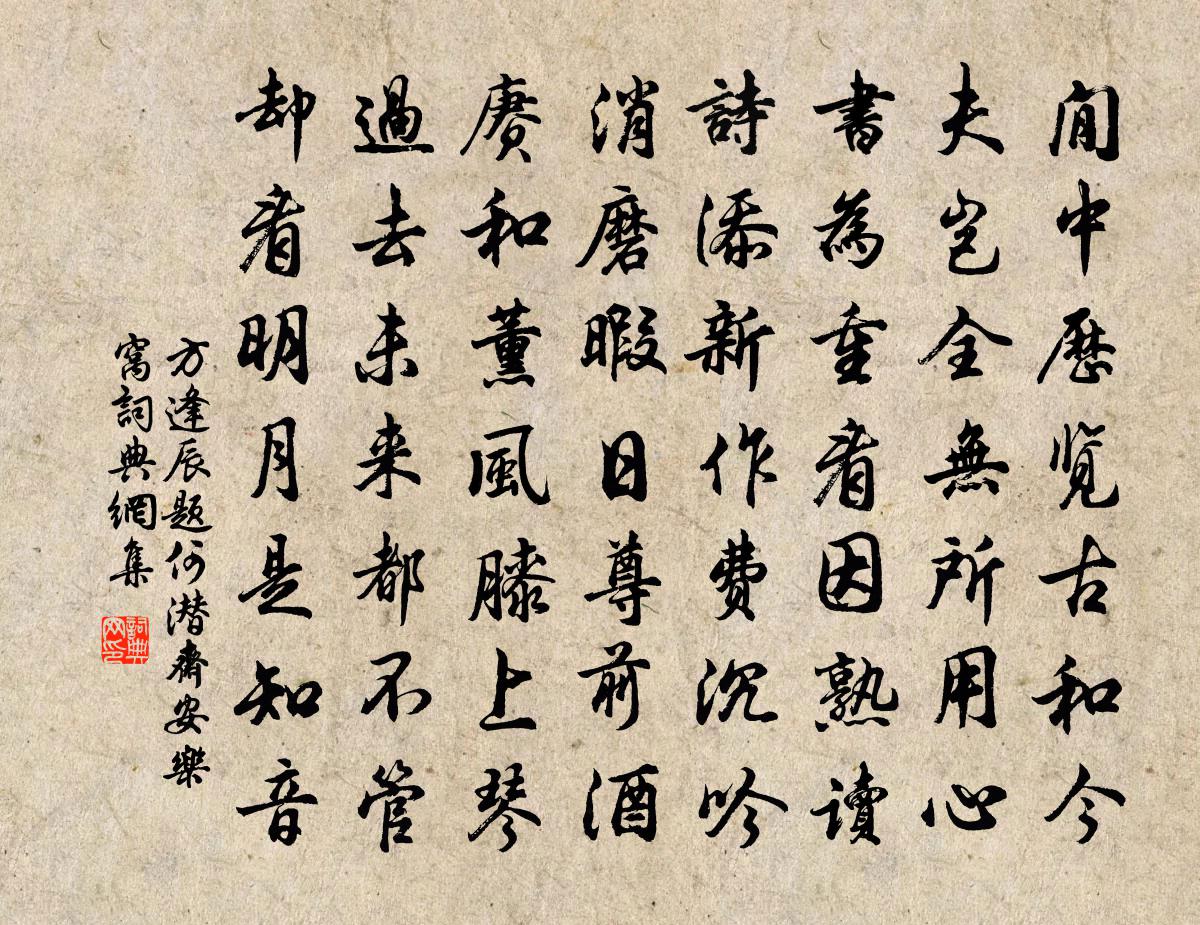 閒中歷覽古和今
夫豈全無所用心
書為重看因熟讀
詩添新作費沉吟
消磨暇日尊前酒
賡和薰風膝上琴
過去未来都不管
却看明月是知音
方逢辰题何潜齋安樂
窩詞典網集
詞典网印